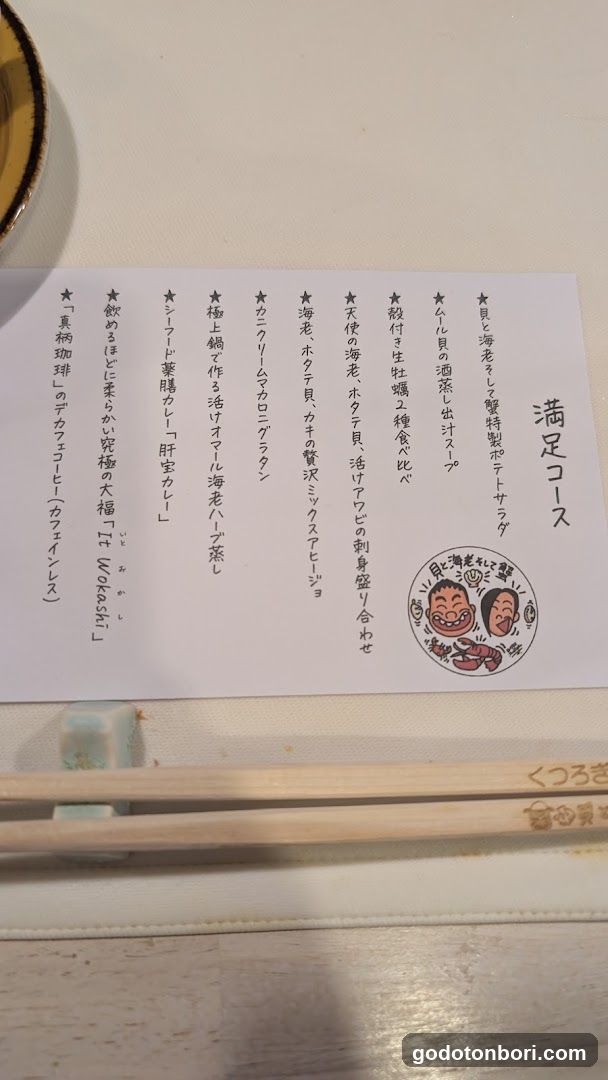 満足コース
★貝と海老そして蟹特製ポテトサラダ
★ムール貝の酒蒸し出汁スープ
★殻付き生牡蠣2種食べ比べ
★天使の海老、ホタテ貝、活けアワビの刺身盛り合わせ
★海老、ホタテ貝、カキの贅沢ミックスアヒージョ
★カニクリームマカロニグラタン
★極上鍋で作る活けオマール海老ハーブ蒸し
★シーフード薬膳カレー「肝宝カレー」
★飲めるほどに柔らかい究極の大福「It Wokashi」
いと をかし
★「真柄珈琲」のデカフェコーヒー(カフェインレス)
貝と海老そして蟹
くつろぎ
godotonbori.com